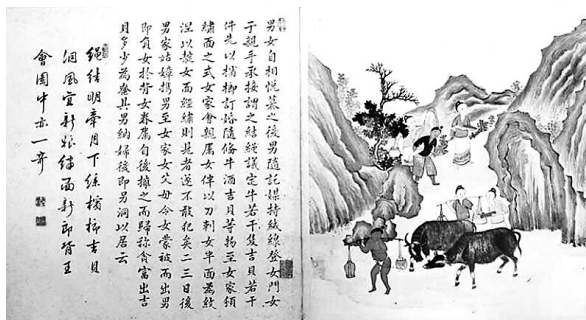 男女自相悅慕之後男隨託媒持絨線登女門女
于親手承接謂之結經議定牛若干隻吉貝若干
件先以檳榔訂婚隨備牛酒吉貝等物至女家領
繡面之式女家會親屬女伴以刀刺女半面為紋
涅以靛女面經繡則見者遂不敢犯矣二三日後
男家姑嫜携男至女家女父母令女蒙被而出男
即負女於背女眷屬自後擁之而歸称貧富出吉
貝多少為奩具男納婦後即男洞以居云
繩結明牽月下絲檳榔吉貝
洞風宜新娘繡面新郎背王
會圖中亦一奇